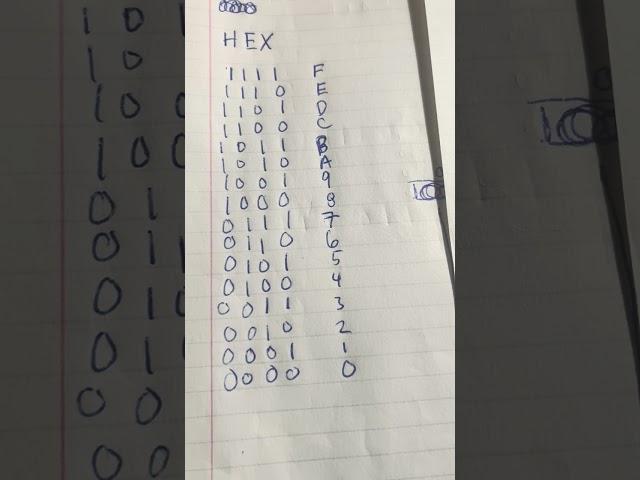 HEX
1111 F
1110 E
1101 D
1100 C
1011 B
1010 A
1001 9
1000 8
0111 7
0110 6
0101 5
0100 4
0011 3
0010 2
0001 1
0000 0